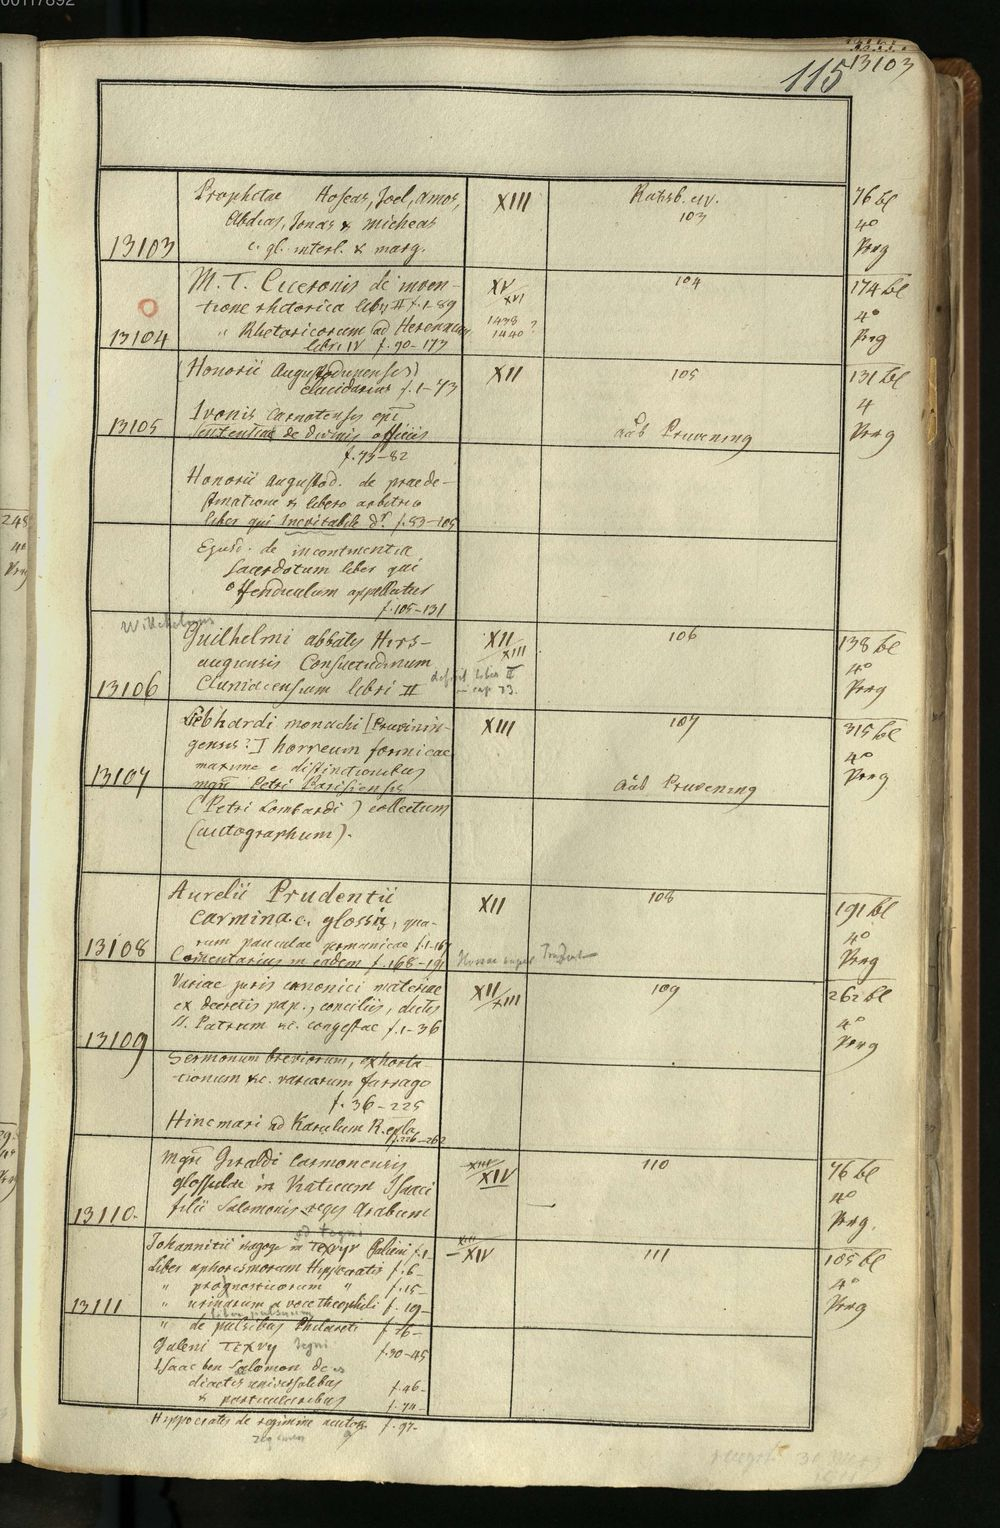 00117892
115 13103
Prophetae Hoseas, Joel, Amos, XIII Ratisb. civ. 76 bl
Abdias, Jonas & Micheas 103 4°
13103 c. gl. interl. & marg. Prg
M. T. Ciceronis de inven- XV/XVI 104 174 bl
tione rhetorica libri II f. 1-89 1438 4°
13104 " Rhetoricorum ad Herennium 1440 ? Prg
libri IV f. 90-173
(Honorii Augustodunensis) XII 105 131 bl
elucidarius f. 1-73 4
Ivonis Carnotensis epī
13105 sententiae de divinis officiis Aāb Pruvening Prg
f. 73-82
Honorii Augustod. de praede-
stinatione & libero arbitrio
liber qui Inevitabile dr. f. 83-105
Ejusd. de incontinentia
sacerdotum liber qui
offendiculum appellatur
f. 105-131
Wilhelmus
Guilhelmi abbatis Hirs- XII/XIII 106 138 bl
augiensis Consuetudinum deficit liber II 4°
13106 Cluniacensium libri II cap 73. Prg
Gebhardi monachi [Pruvinin- XIII 107 315 bl
gensis?] horreum formicae 4°
maxime e distinctionibus
13107 mgrī Petri Parisiensis Aāb Pruvening Prg
(Petri Lombardi) collectum
(autographum).
Aurelii Prudentii XII 108 191 bl
Carmina c. glossis, qua- 4°
rum pauculae germanicae f. 1-167
13108 Comentarius in eadem f. 168-191 Prg
Variae juris canonici materiae XII/XIII 109 262 bl
ex decretis pap., conciliis, dictis 4°
S. Patrum &c. congestae f. 1-36
13109 Prg
Sermonum breviorum, exhorta-
tionum &c. variarum farrago
f. 36-225
Hincmari ad Karulum R. epla
f. 226-262
mgrī Giraldi Carmonensis XIII XIV 110 76 bl
glossulae in Viaticum Isaaci 4°
13110. filii Salomonis regis Arabum Prg.
ad tegni
Johannitii isagoge in Τεχνην Galieni f. 1- XIII -XIV 111 105 bl
Liber aphorismorum Hippocratis f. 6- 4°
" prognosticorum " f. 15-
13111 " urinarum a voce theophili f. 109- Prg
liber pulsuum
" de pulsibus Philareti f. 16-
Galeni Τεχνη Tegni f. 30-45
Isaac ben Salomon de
diaetis universalibus f. 46-
& particularibus f. 74-
Hippocratis de regimine acutor. f. 97-
regimen